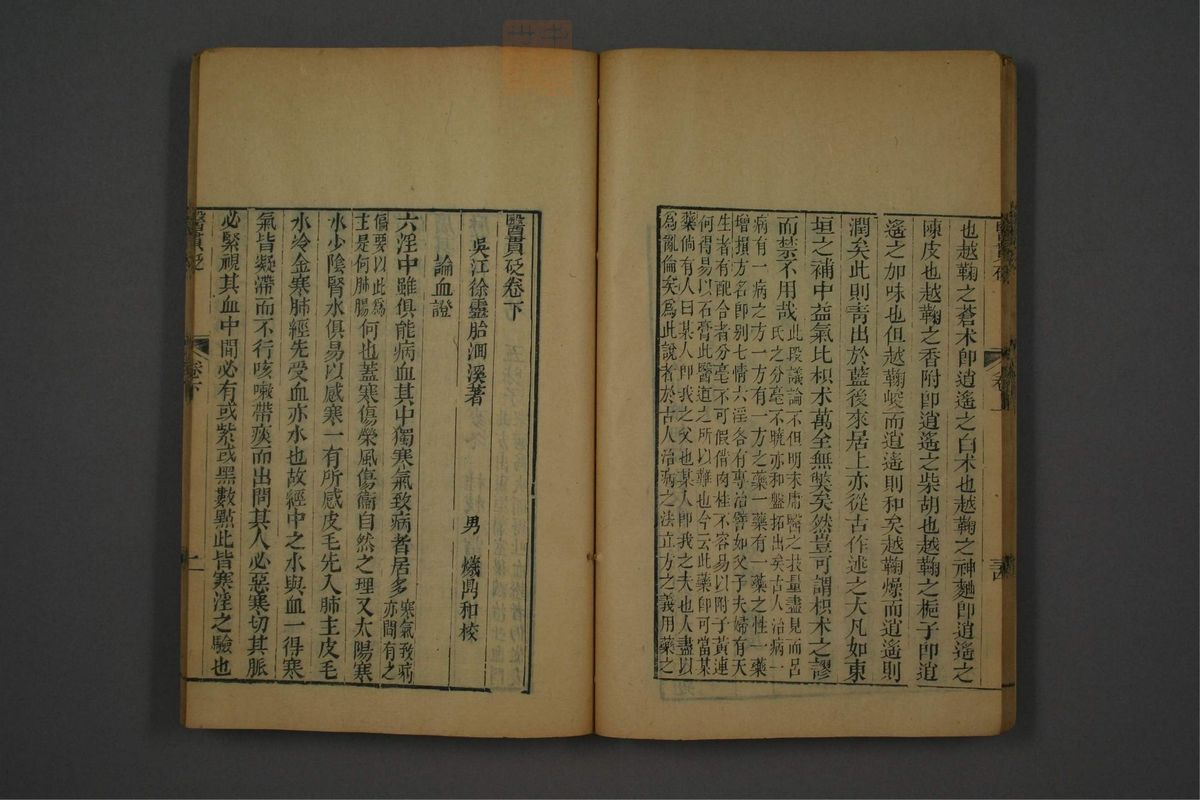 也越鞠之蒼术卽逍遙之白术也越鞠之神麯卽逍遙之
陳皮也越鞠之香附卽逍遙之柴胡也越鞠之梔子卽逍
遙之加味也但越鞠峻而逍遙則和矣越鞠燥而逍遙則
潤矣此則靑出於藍後來居上亦從古作述之大凡如東
垣之補中益氣比枳术萬全無獘矣然豈可謂枳术之謬
而禁不用哉此段議論不但明末庸醫之技量盡見而呂
氏之分毫不曉亦和盤拓出矣古人治病一
病有一病之方一方有一方之藥一藥有一藥之性一藥
增損方名卽別七情六淫各有專治譬如父子夫婦有天
生者有配合者分毫不可假借肉桂不容易以附子黃連
何得易以石膏此醫道之所以難也今云此藥卽可當某
藥倘有人曰某人卽我之父也某人卽我之夫也人盡以
爲亂倫矣爲此說者於古人治病之法立方之義用藥之
醫貫砭卷下
吳江徐靈胎洄溪著
男 爔鼎和校
論血證
六淫中雖俱能病血其中獨寒氣致病者居多寒氣致病
亦間有之
偏要以此爲
主是何肺腸何也蓋寒傷榮風傷衞自然之理又太陽寒
水少陰腎水俱易以感寒一有所感皮毛先入肺主皮毛
水冷金寒肺經先受血亦水也故經中之水與血一得寒
氣皆凝滯而不行咳嗽帶痰而出問其人必惡寒切其脈
必緊視其血中間必有或紫或黑數點此皆寒淫之驗也
醫貫砭
卷下
一